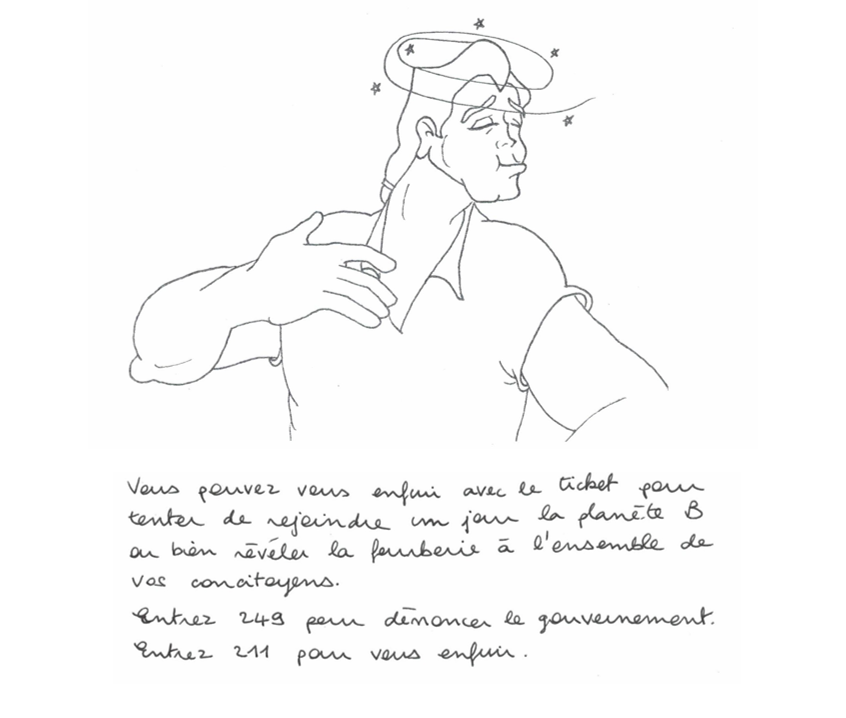 Vous pouvez vous enfuir avec le ticket pour
tenter de rejoindre un jour la planète B
ou bien révéler la fourberie à l'ensemble de
vos concitoyens.
Entrez 249 pour dénoncer le gouvernement.
Entrez 211 pour vous enfuir.